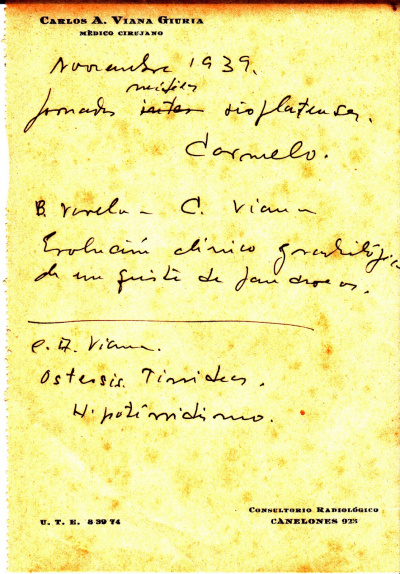 CARLOS A. VIANA GIURIA
MÉDICO CIRUJANO
Noviembre 1939.
Jornadas rioplatenses.
Carmelo.
B. Varela - C. Viana
Evolución clinico
de un quiste de
C. A. Viana.
Tiroideas.
Hipotiroidismo.
CONSULTORIO RADIOLÓGICO
U. T. E. 8 39 74
CANELONES 923